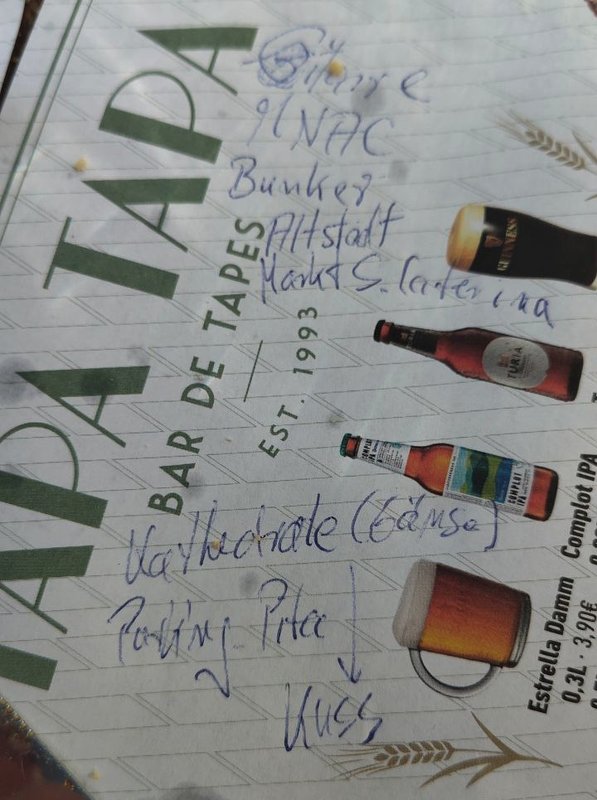 MNAC
Bunker
Altstadt
Markt S. Caterina
TAPA TAPA
BAR DE TAPES
EST. 1993
GUINNESS
TURIA
COMPLOT
IPA
Kathedrale (Gänse)
Kuss
Complot IPA
Estrella Damm
0,3L · 3,90€